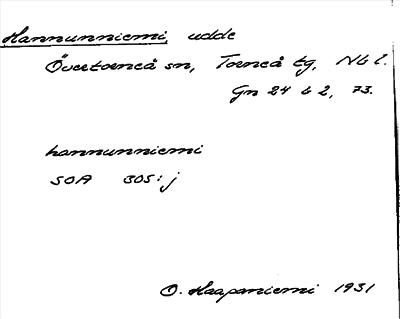 Hannunniemi, udde
Övertorneå sn, Torneå tg, Nb l.
Gn 24 b 2, 73.
hannunniemi
SOA 305:j
O. Haapaniemi 1931